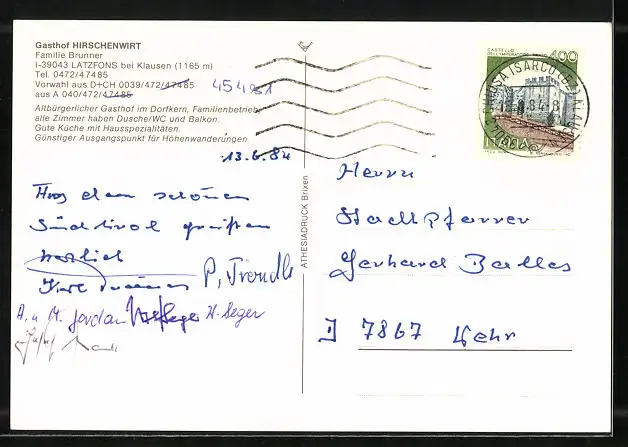 Gasthof HIRSCHENWIRT
Familie Brunner
I-39043 LATZFONS bei Klausen (1165 m)
Tel. 0472/47485
Vorwahl aus D+CH 0039/472/47485
aus A 040/472/47485
Altbürgerlicher Gasthof im Dorfkern, Familienbetrieb,
alle Zimmer haben Dusche/WC und Balkon.
Gute Küche mit Hausspezialitäten.
Günstiger Ausgangspunkt für Höhenwanderungen
13.6.84
Aus dem schönen
Südtirol grüßen
herzlich
P. Trendle
A. u. M. Jordan H. Seger
ATHESIADRUCK Brixen
CASTELLO
400
ITALIA
Herrn
Stadtpfarrer
Gerhard Balles
7867 Wehr